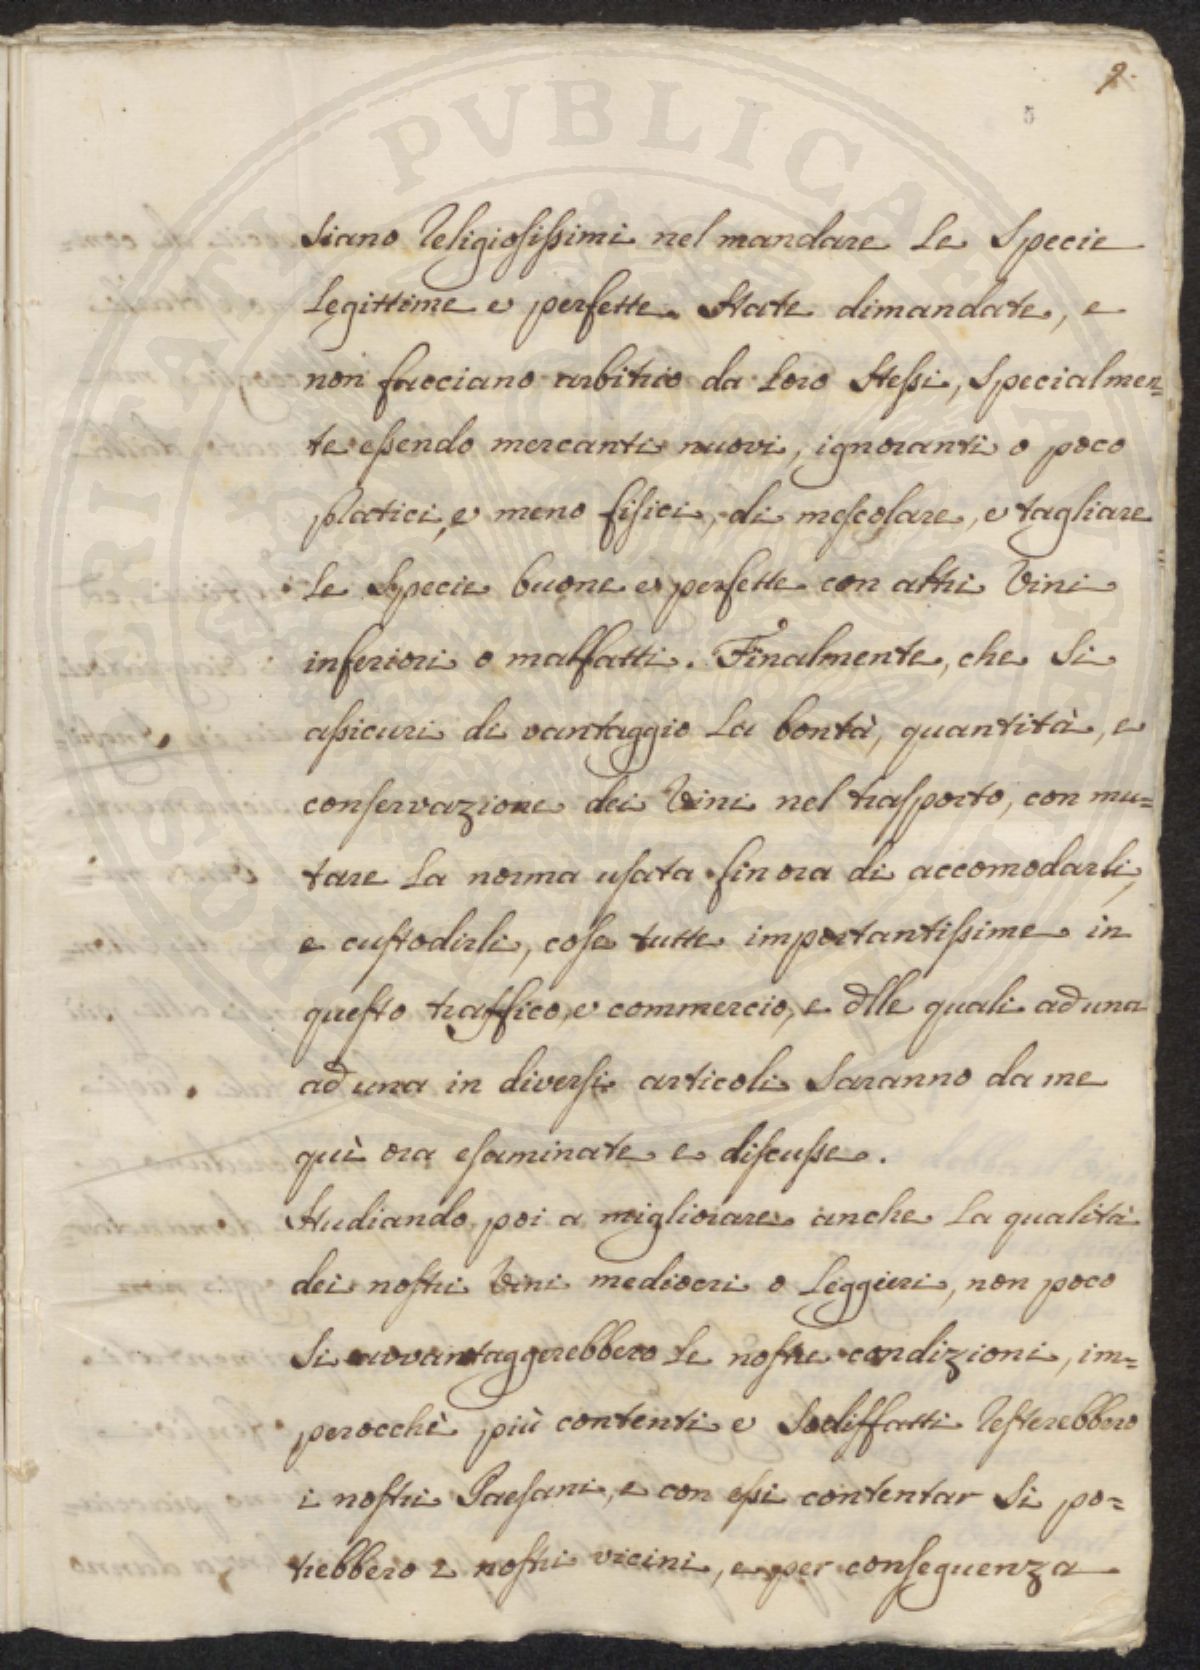 9.
5
siano religiosissimi nel mandare le specie
legittime e perfette state dimandate, e
non facciano arbitrio da loro stessi, specialmen=
te essendo mercanti nuovi, ignoranti o poco
pratici, e meno fisici, di mescolare, e tagliare
le specie buone e perfette con altri Vini
inferiori o malfatti. Finalmente, che si
assicuri di vantaggio la bontà, quantità, e
conservazione dei Vini nel trasporto, con mu=
tare la norma usata finora di accomodarli,
e custodirli, cose tutte importantissime in
questo traffico, e commercio, e dlle quali ad una
ad una in diversi articoli saranno da me
quì ora esaminate e discusse.
Studiando poi a migliorare anche la qualità
dei nostri Vini mediocri o leggieri, non poco
si avvantaggerebbero le nostre condizioni, im=
perocchè più contenti e sodisfatti resterebbero
i nostri Paesani, e con essi contentar si po=
trebbero i nostri vicini, e per conseguenza